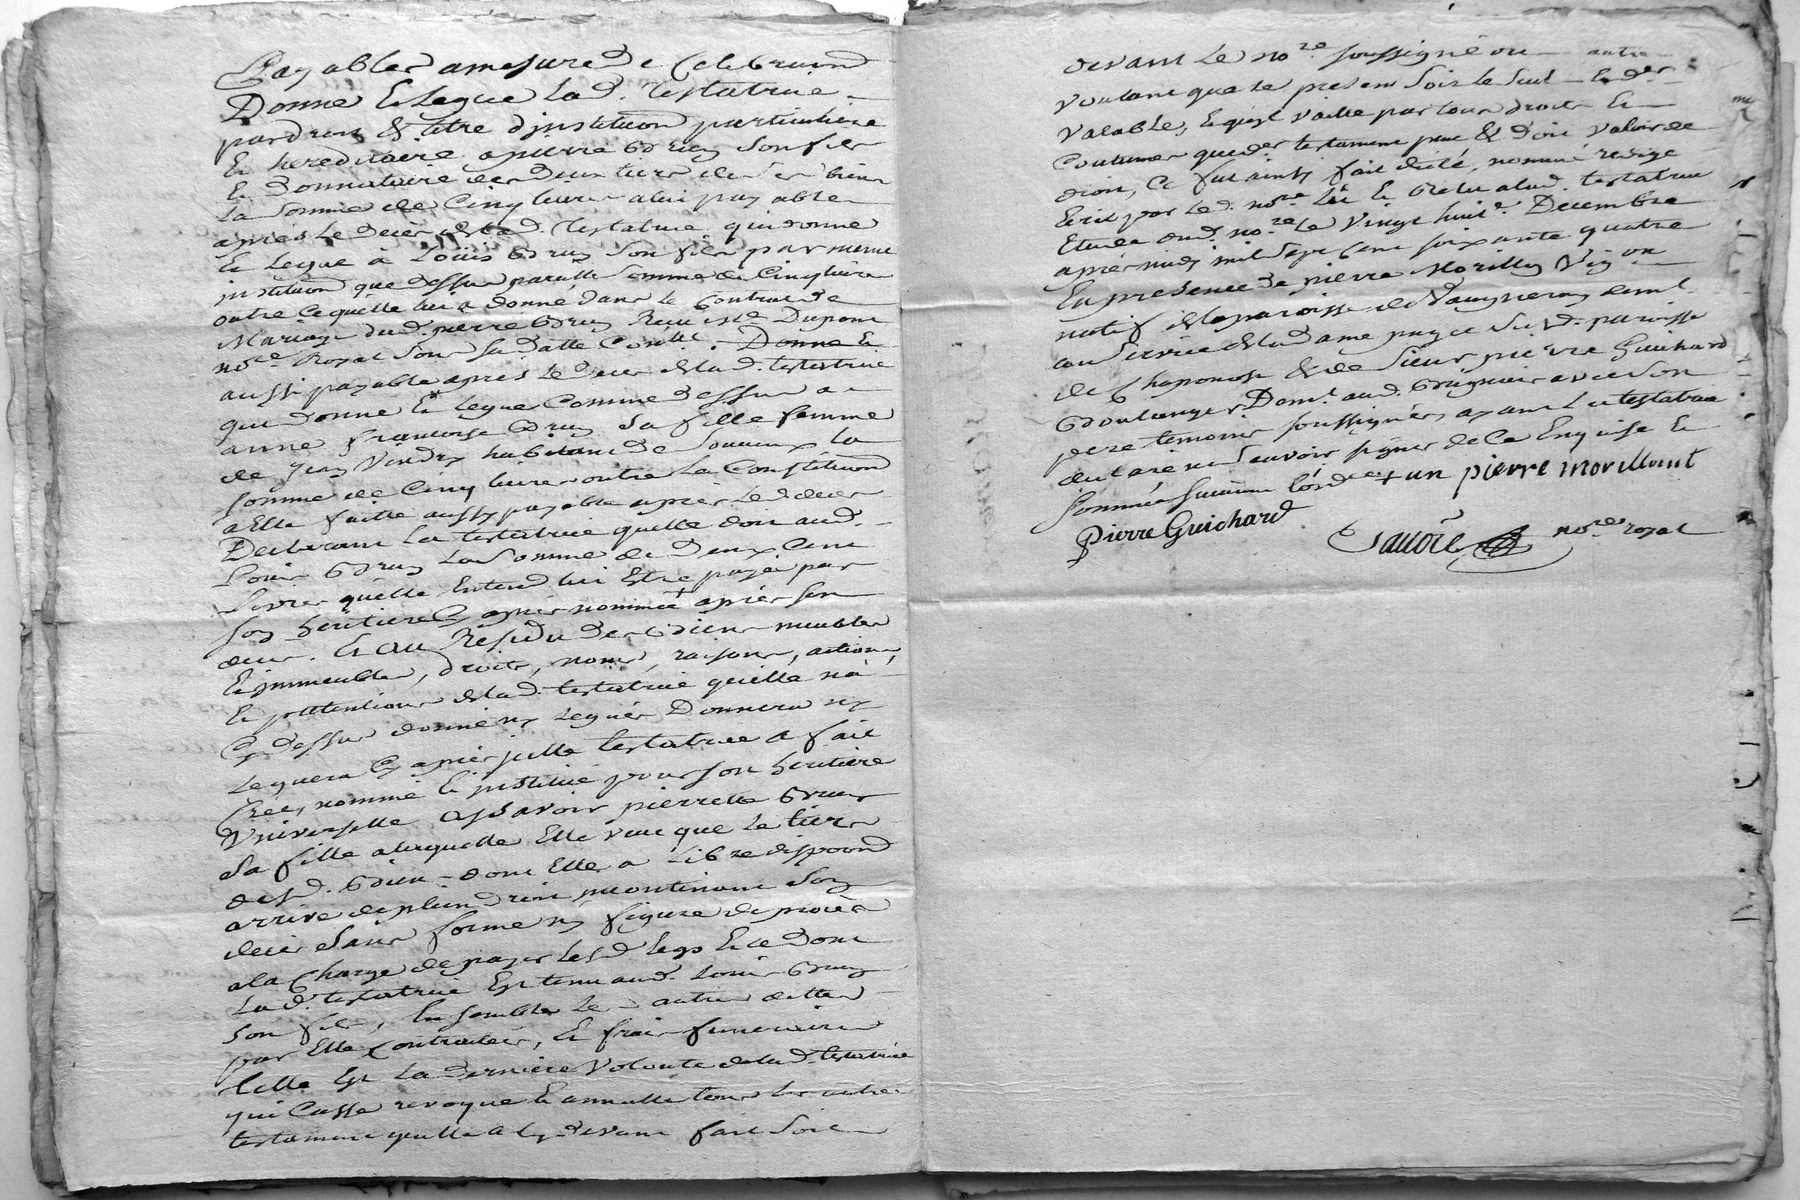 Payables amesure de Celebraon
Donne & Legue lad. testatrice
par droit & titre d'institution particuliere
Et hereditaire a pierre Bruy son fils
Et Donnataire des deux tiers de ses biens
la somme de Cinq livres a lui payable
après le decès de lad. testatrice qui donne
Et legue à Louis Bruy son fils par meme
institution que dessus pareille somme de Cinq livres
outre ce quelle lui a donné dans le Contrat de
Mariage dud. pierre Bruy Recu Me Dupont
nore Royal Sous sa datte Contlé. Donne Et
aussi payable après le decès de lad. testatrice
qui donne Et legue Comme dessus a
anne francoise Bruy sa fille femme
de Jean habitant de la
somme de Cinq livres outre la Constitution
a Elle faitte aussy payable après led. decès
Declarant la testatrice quelle doit aud.
Louis Bruy la somme de deux Cent
Livres quelle Entend lui Estre payée par
son heritiere cy après nommée après son
decès. Et au Residu des biens meubles
Et immeubles, droits, noms, raisons, actions,
Et prettentions de lad. testatrice quelle n'a
Cy dessus donné ny legués Donnera ny
leguera Cy après jcelle testatrice a fait
Créé, nommé Et institué pour son heritiere
Vniverselle asavoir pierrette Bruy
Sa fille a laquelle Elle veut que le tiers
desd. biens dont Elle a libre disposon
arrive de plein droit incontinent son
decès sans forme ny figure de procès
a la Charge de payer lesd. legs Et ce dont
lad. testatrice Est tenu aud. Louis Bruy
son fils, Ensemble les autres dettes
par Elle Contractées, Et frais funeraires
telle Est la derniere Volonté de lad. testatrice
qui Casse revoque Et annulle tous les autres
testament quelle a Cy devant fait soit
devant le nore soussigné ou autre
voulant que le present soit le seul Et der
valable, Et quil vaille par tous droits Et
Coutumes que des testament peut & doit valoir de
droit, Ce fut ainsy fait dicté, nommé redigé
Ecrit par led. nore Lû Et relu a lad. testatrice
Etude dud. nore le vingt huite. Decembre
après midy mil sept Cent soixante quatre
En presence de pierre Morillon Vigon
natif de la paroisse de Vaugneray demt.
au service de la dame page sur lad. paroisse
de Chaponost & de Sieur pierre Guichard
Boulanger Demt. aud. Brignais avec son
pere temoins soussignés, ayant la testatrice
declaré ne savoir signer de Ce Enquise Et
Sommée suivant l'ordce + un pierre morillont
Pierre Guichard
nore royal